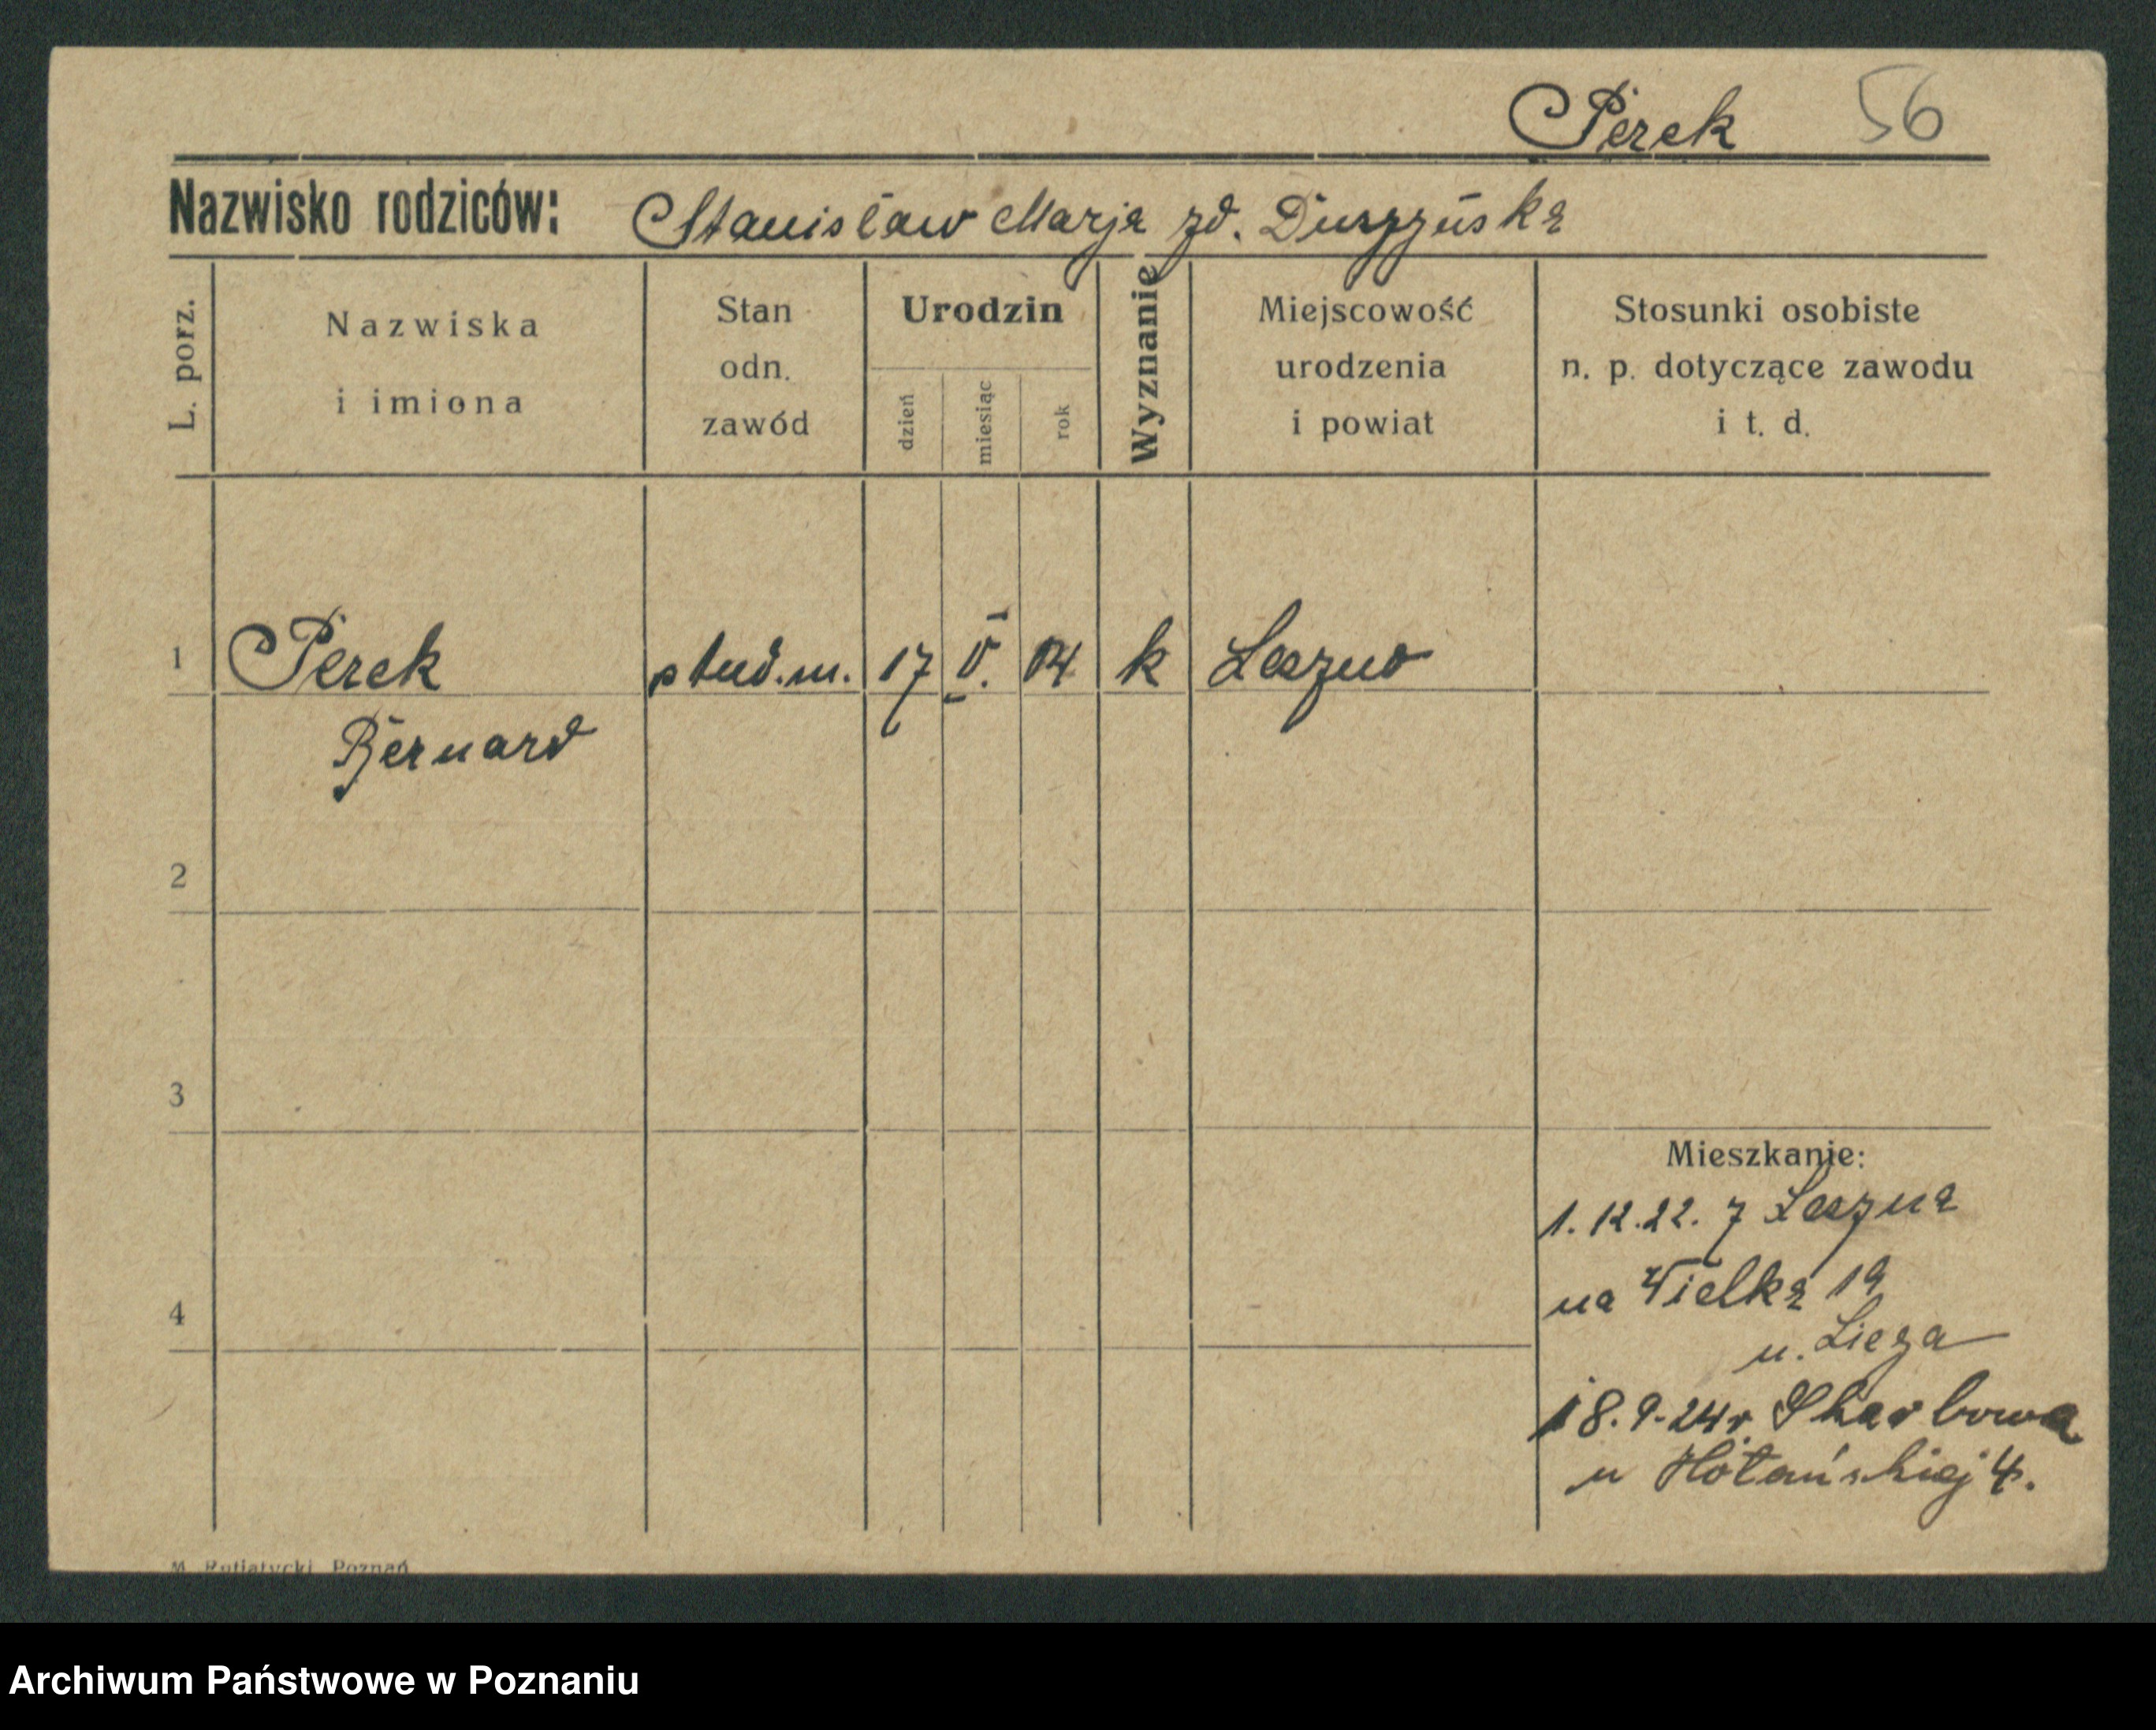 Perek 56
Nazwisko rodziców: Stanisław Marja zd. Duszyńska
L. porz.
Nazwiska
i imiona
Stan
odn.
zawód
Urodzin
dzień
miesiąc
rok
Wyznanie
Miejscowość
urodzenia
i powiat
Stosunki osobiste
n. p. dotyczące zawodu
i t. d.
1 Perek stud. m. 17 V. 04 k Leszno
Bernard
2
3
4
Mieszkanie:
1.12.22. z Leszna
na Wielka 19
u. Lieza
18.9.24r. Skarbowa
u 4.
M. Poznań
Archiwum Państwowe w Poznaniu